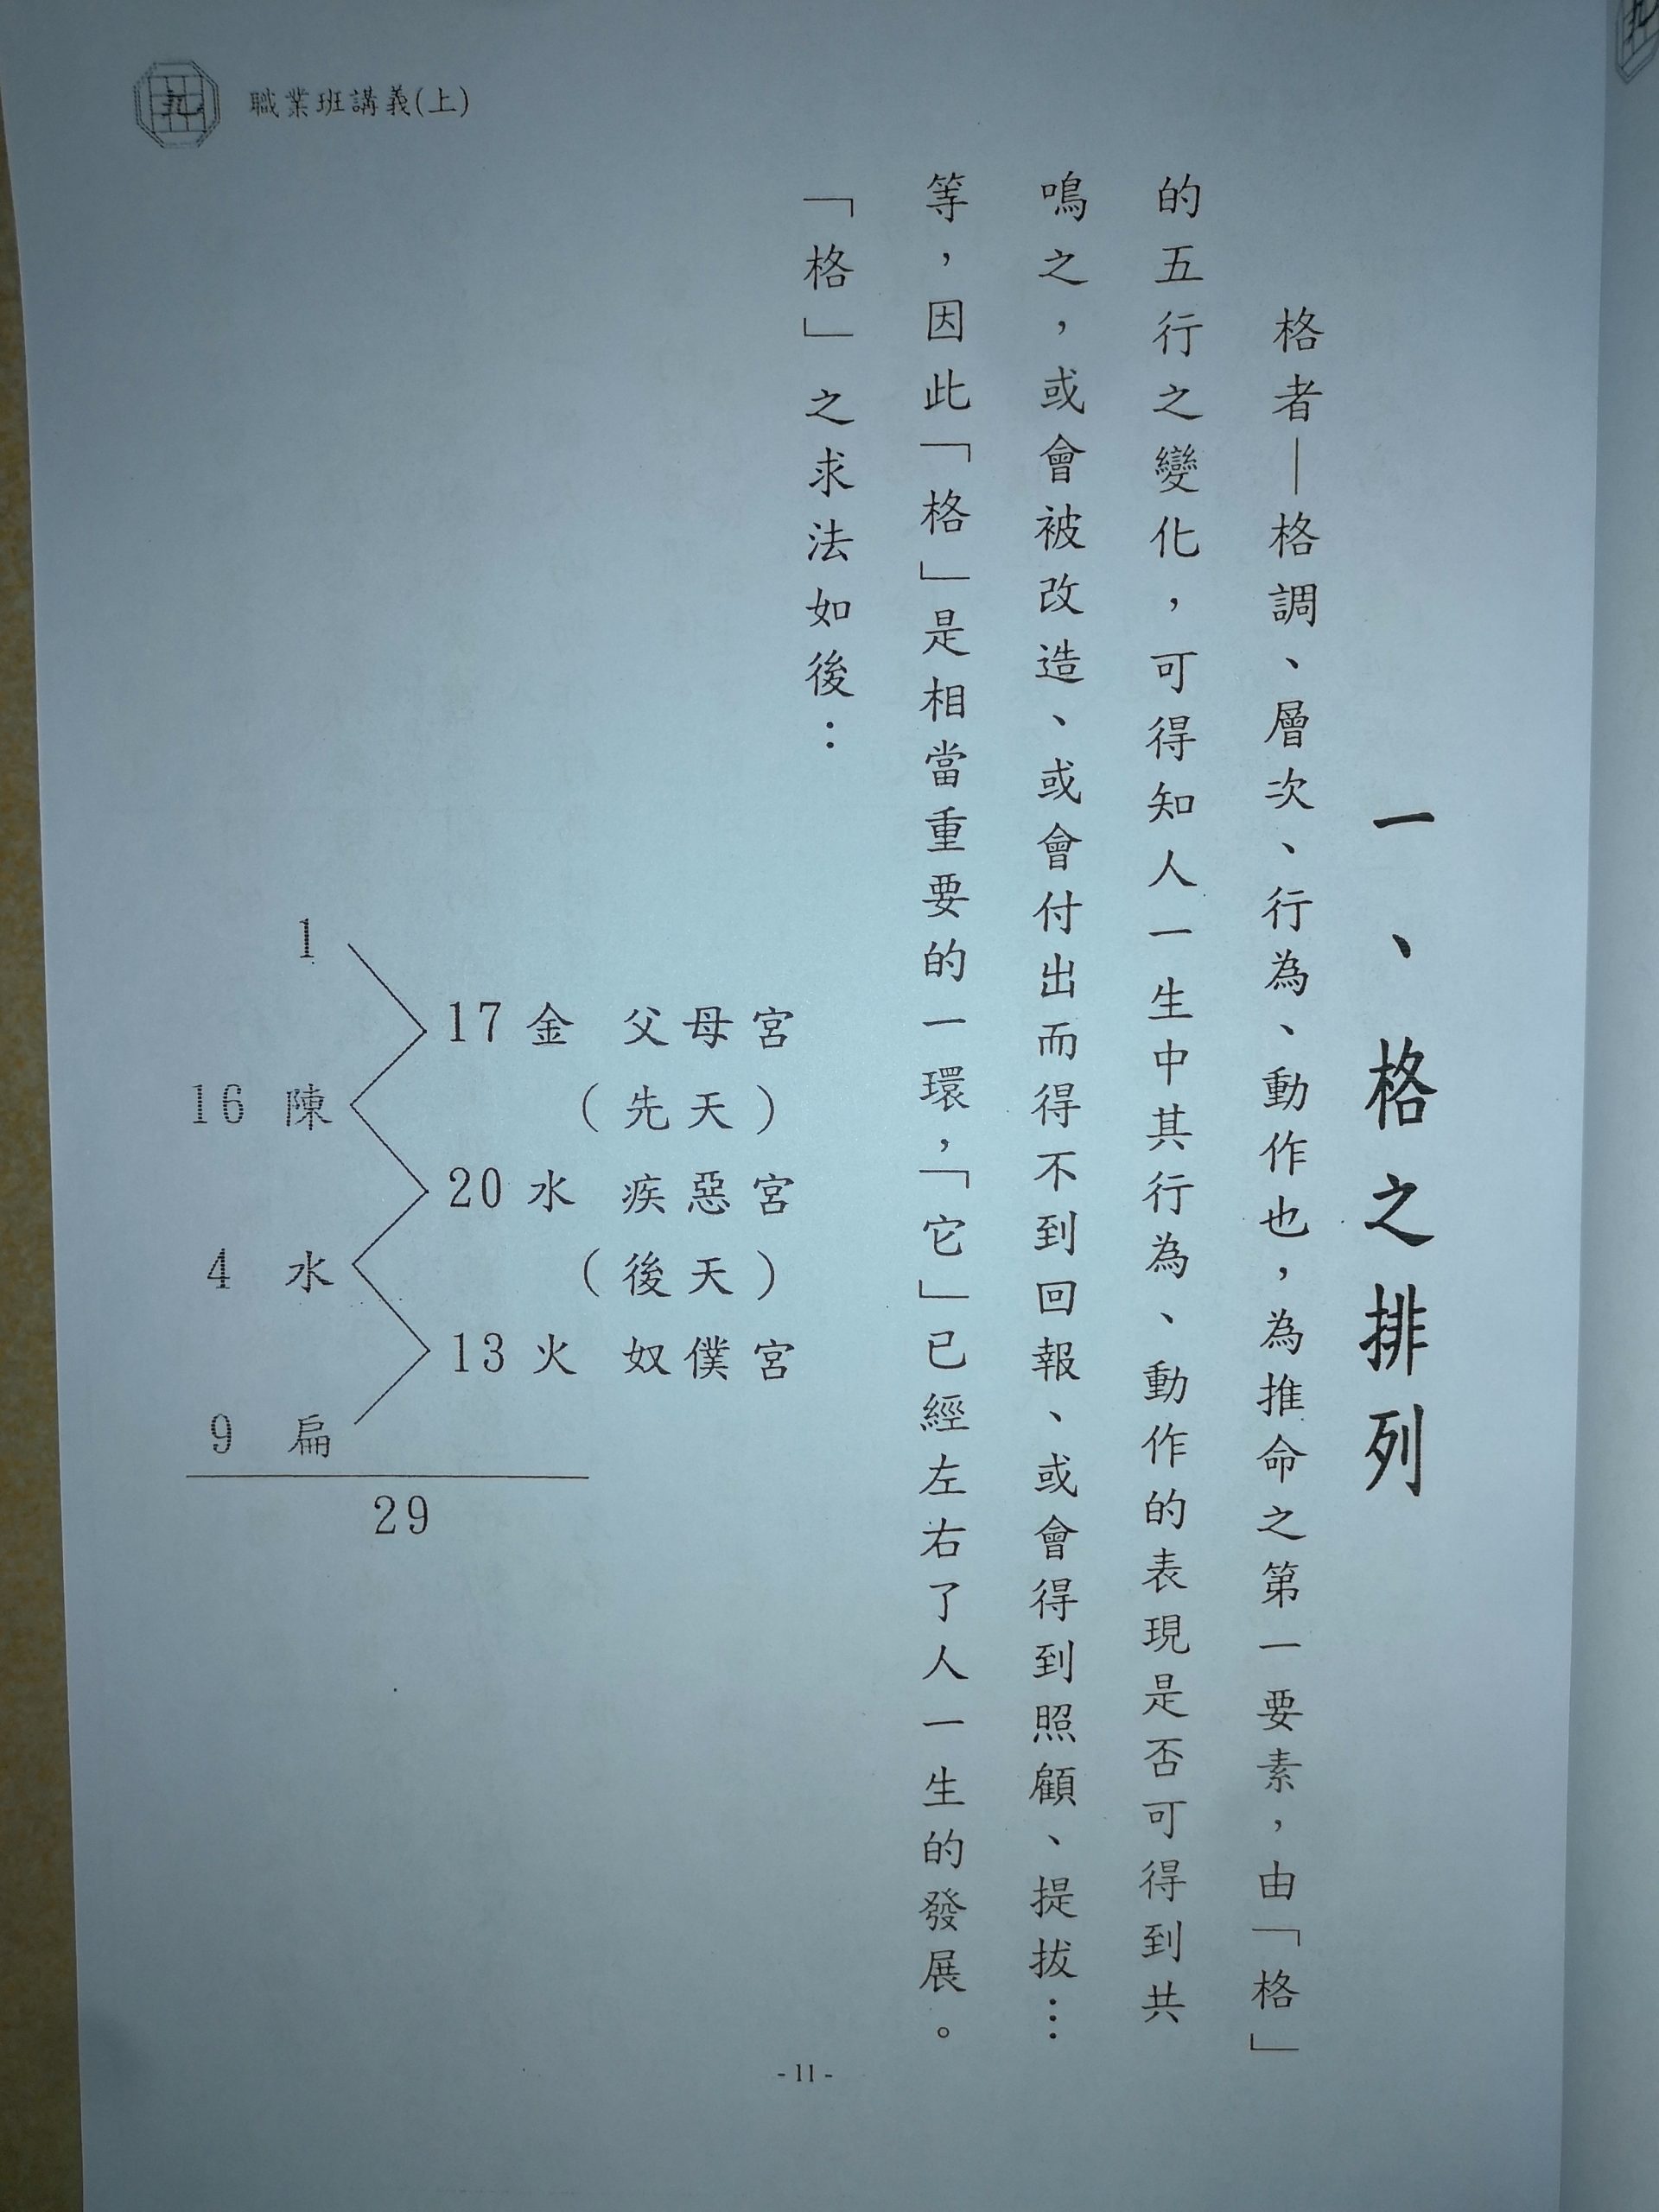 職業班講義(上)
一、格之排列
格者—格調、層次、行為、動作也，為推命之第一要素，由「格」
的五行之變化，可得知人一生中其行為、動作的表現是否可得到共
鳴之，或會被改造、或會付出而得不到回報、或會得到照顧、提拔…
等，因此「格」是相當重要的一環，「它」已經左右了人一生的發展。
「格」之求法如後：
1
17 金 父母宮
16 陳 (先天)
20 水 疾惡宮
4 水 (後天)
13 火 奴僕宮
9 扁
29
- 11 -